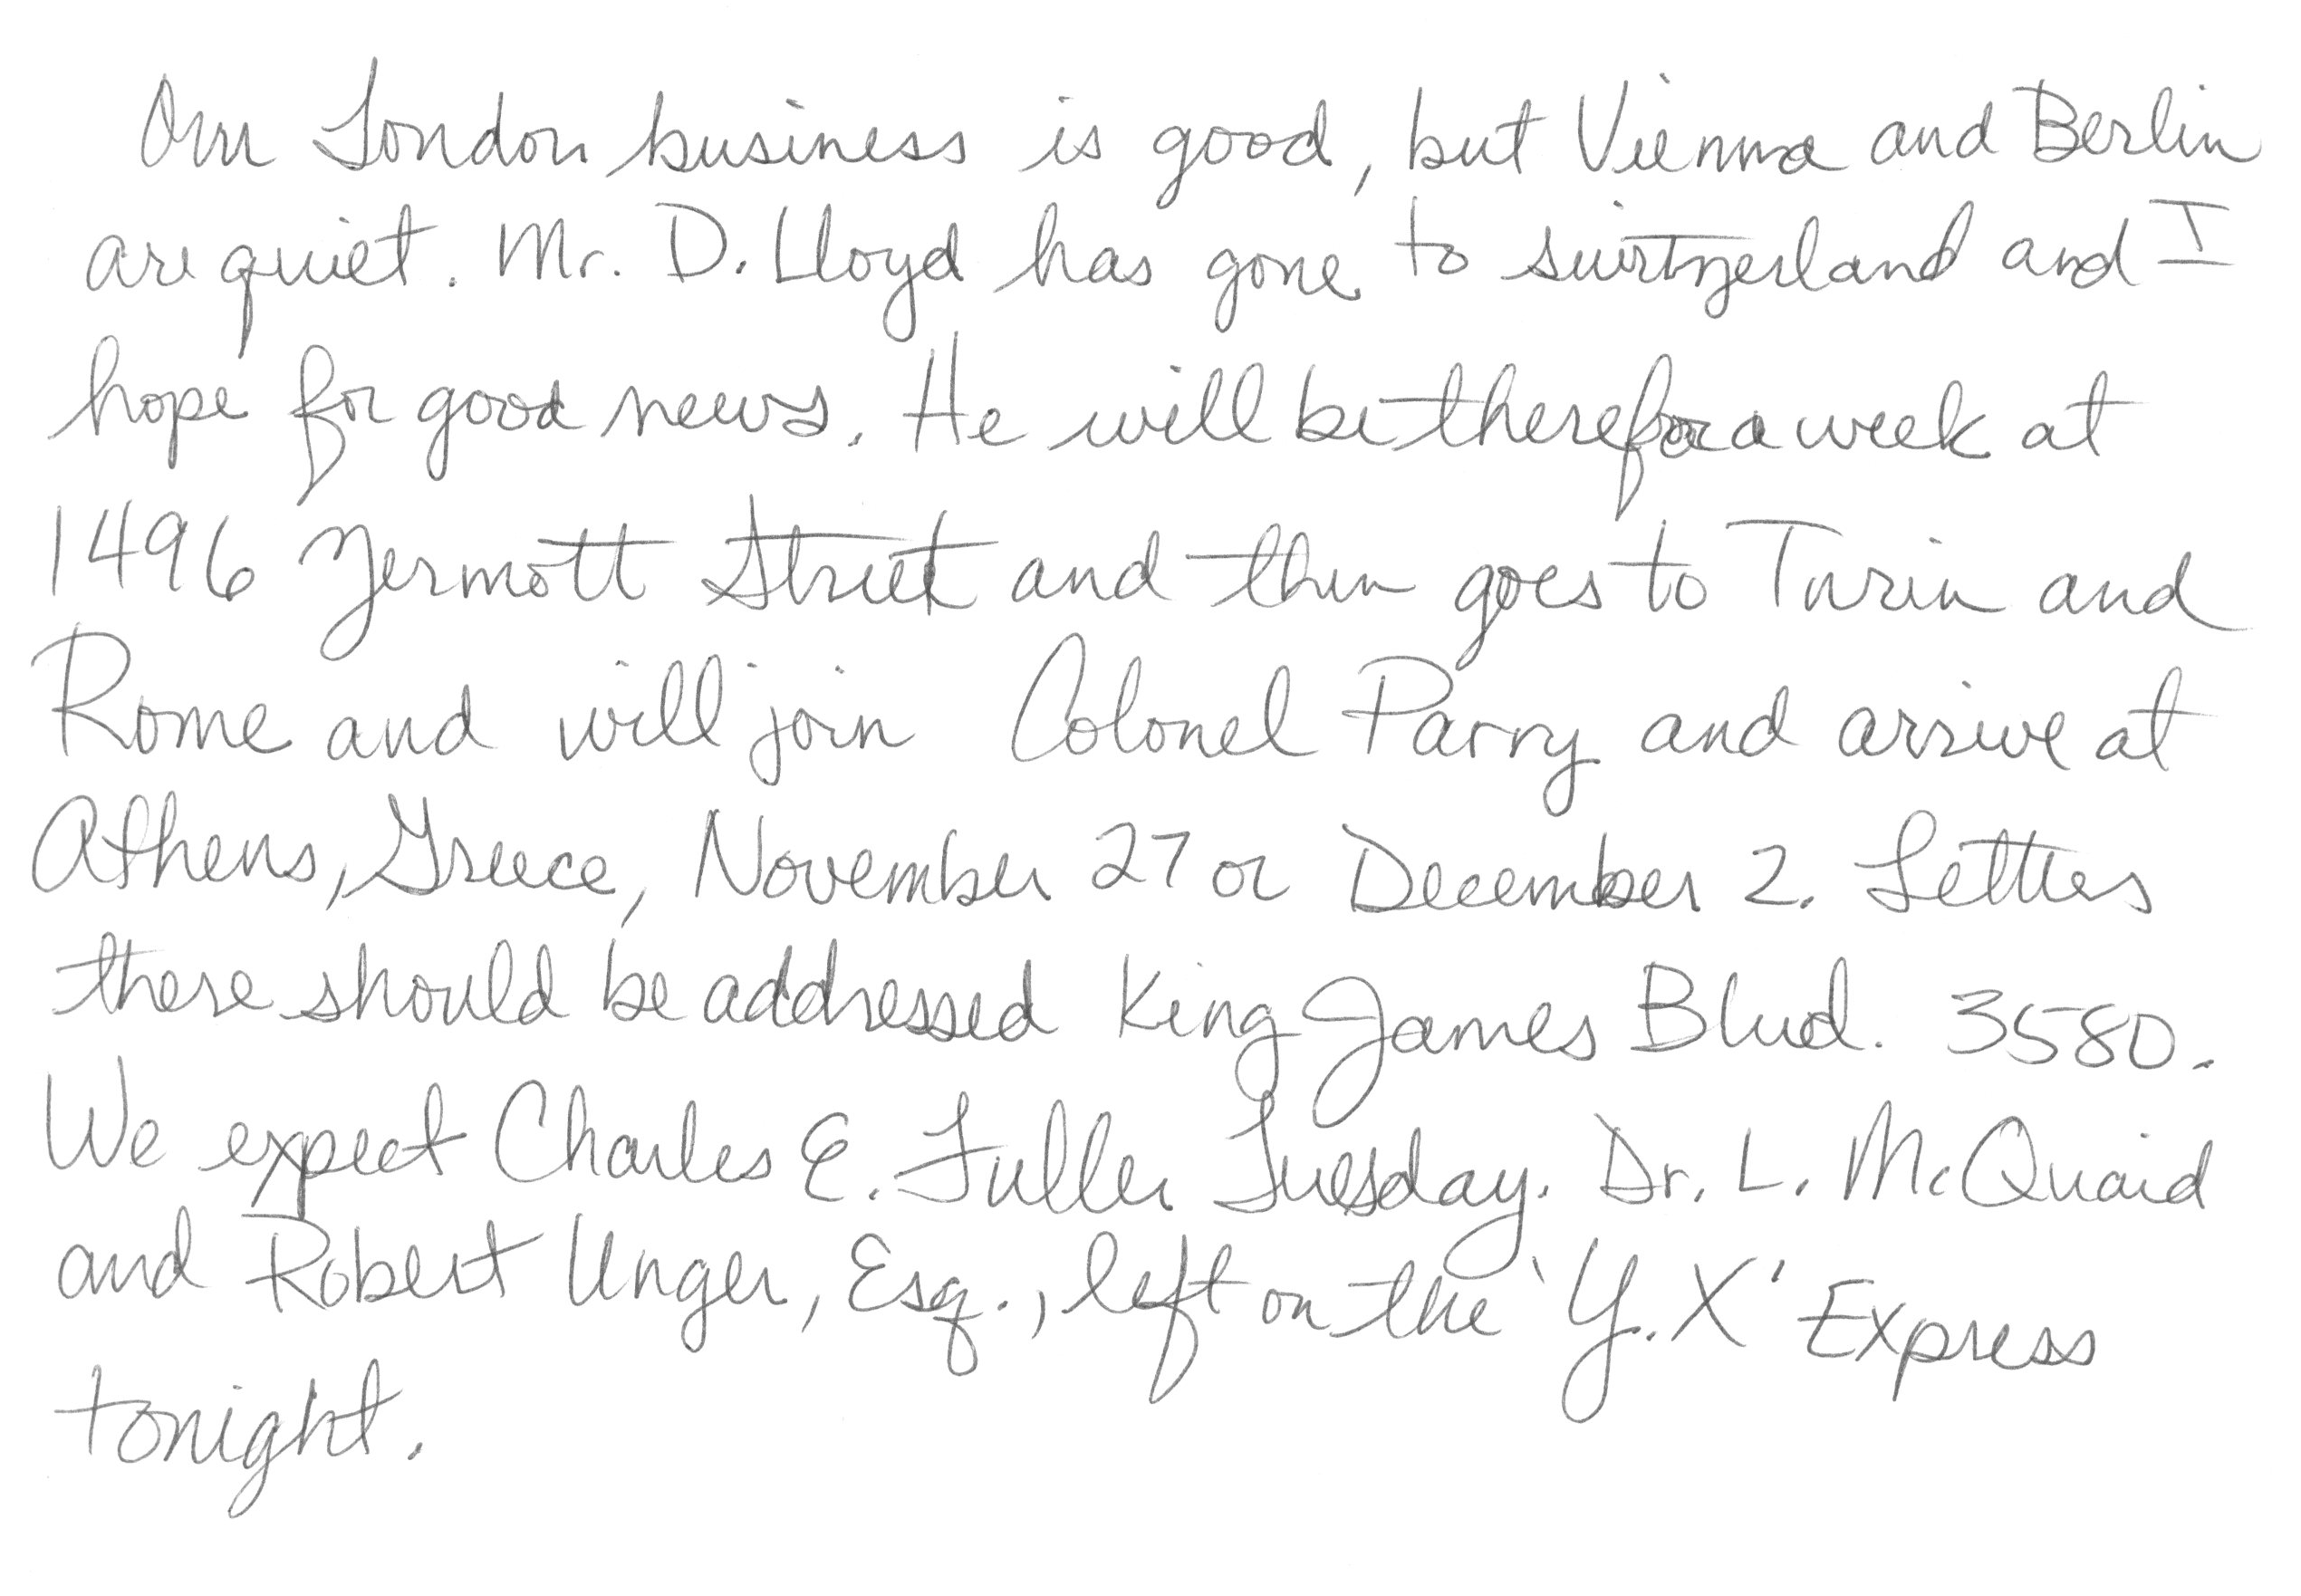 Our London business is good, but Vienna and Berlin
are quiet. Mr. D. Lloyd has gone to Switzerland and I
hope for good news. He will be there for a week at
1496 Zermott Street and then goes to Turin and
Rome and will join Colonel Parry and arrive at
Athens, Greece, November 27 or December 2. Letters
there should be addressed King James Blvd. 3580.
We expect Charles E. Fuller Tuesday. Dr. L. McQuaid
and Robert Unger, Esq., left on the 'Y.X' Express
tonight.